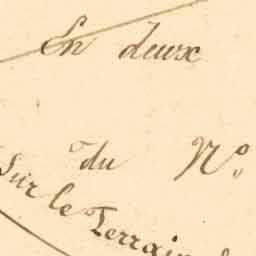 En deux
du N.o
Sur le Terrain